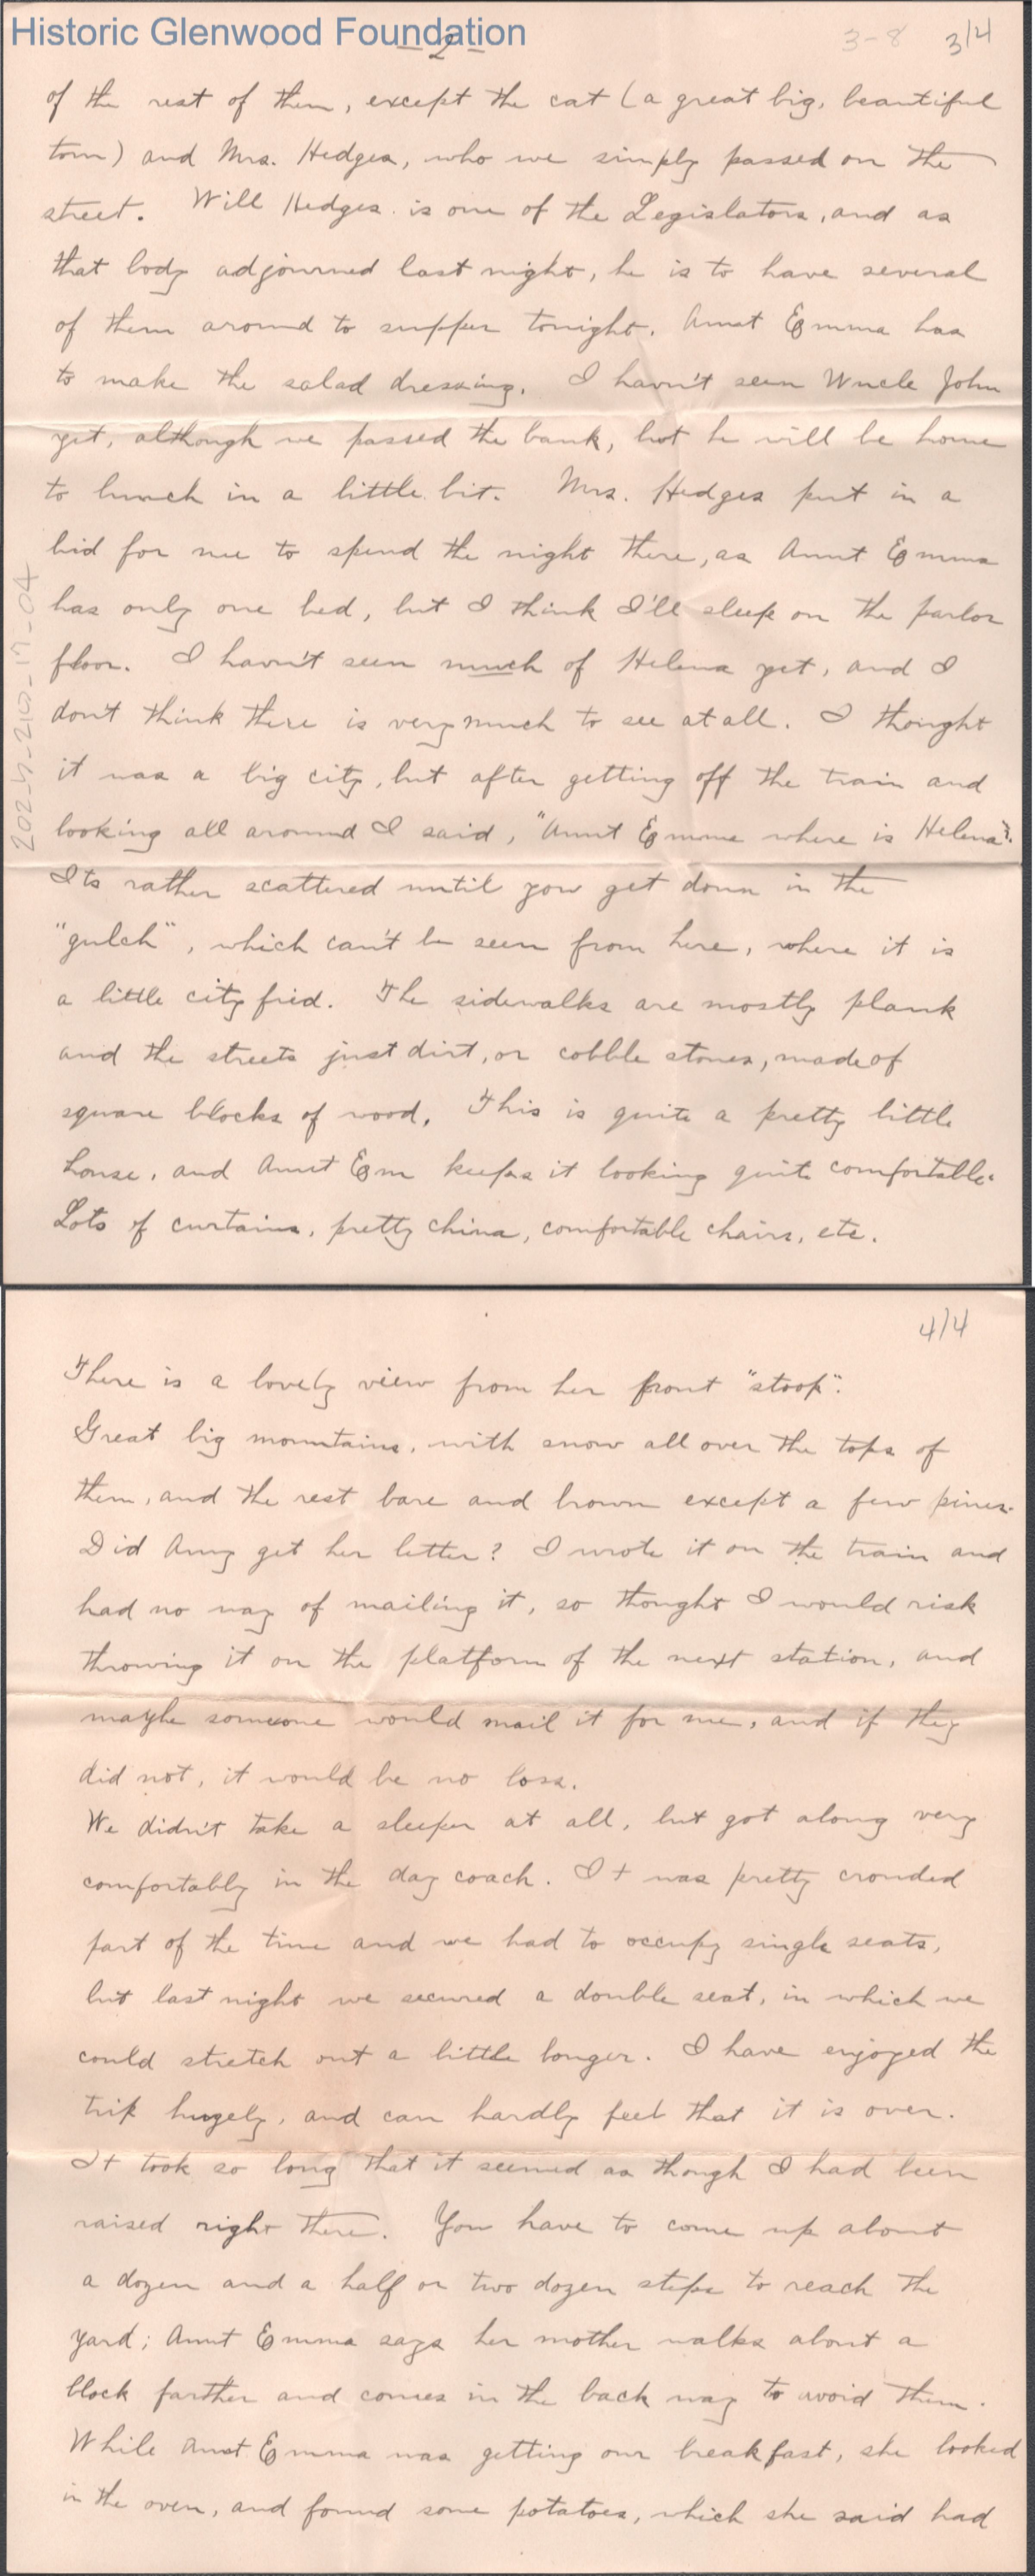 Historic Glenwood Foundation
- 2 -
3-8 3/4
of the rest of them, except the cat (a great big, beautiful
tom) and Mrs. Hedges, who we simply passed on the
street. Will Hedges is one of the Legislators, and as
that body adjourned last night, he is to have several
of them around to supper tonight. Aunt Emma has
to make the salad dressing. I havn't seen Uncle John
yet, although we passed the bank, but he will be home
to lunch in a little bit. Mrs. Hedges put in a
bid for me to spend the night there, as Aunt Emma
has only one bed, but I think I'll sleep on the parlor
floor. I havn't seen much of Helena yet, and I
don't think there is very much to see at all. I thought
it was a big city, but after getting off the train and
looking all around I said, "Aunt Emma where is Helena"?
Its rather scattered until you get down in the
"gulch", which can't be seen from here, where it is
a little city fied. The sidewalks are mostly plank
and the streets just dirt, or cobble stones, made of
square blocks of wood. This is quite a pretty little
house, and Aunt Em keeps it looking quite comfortable.
Lots of curtains, pretty china, comfortable chairs, etc.
4/4
There is a lovely view from her front "stoop".
Great big mountains, with snow all over the tops of
them, and the rest bare and brown except a few pines.
Did Amy get her letter? I wrote it on the train and
had no way of mailing it, so thought I would risk
throwing it on the platform of the next station, and
maybe someone would mail it for me, and if they
did not, it would be no loss.
We didn't take a sleeper at all, but got along very
comfortably in the day coach. It was pretty crowded
part of the time and we had to occupy single seats,
but last night we secured a double seat, in which we
could stretch out a little longer. I have enjoyed the
trip hugely, and can hardly feel that it is over.
It took so long that it seemed as though I had been
raised right there. You have to come up about
a dozen and a half or two dozen steps to reach the
yard; Aunt Emma says her mother walks about a
block farther and comes in the back way to avoid them.
While Aunt Emma was getting our breakfast, she looked
in the oven, and found some potatoes, which she said had